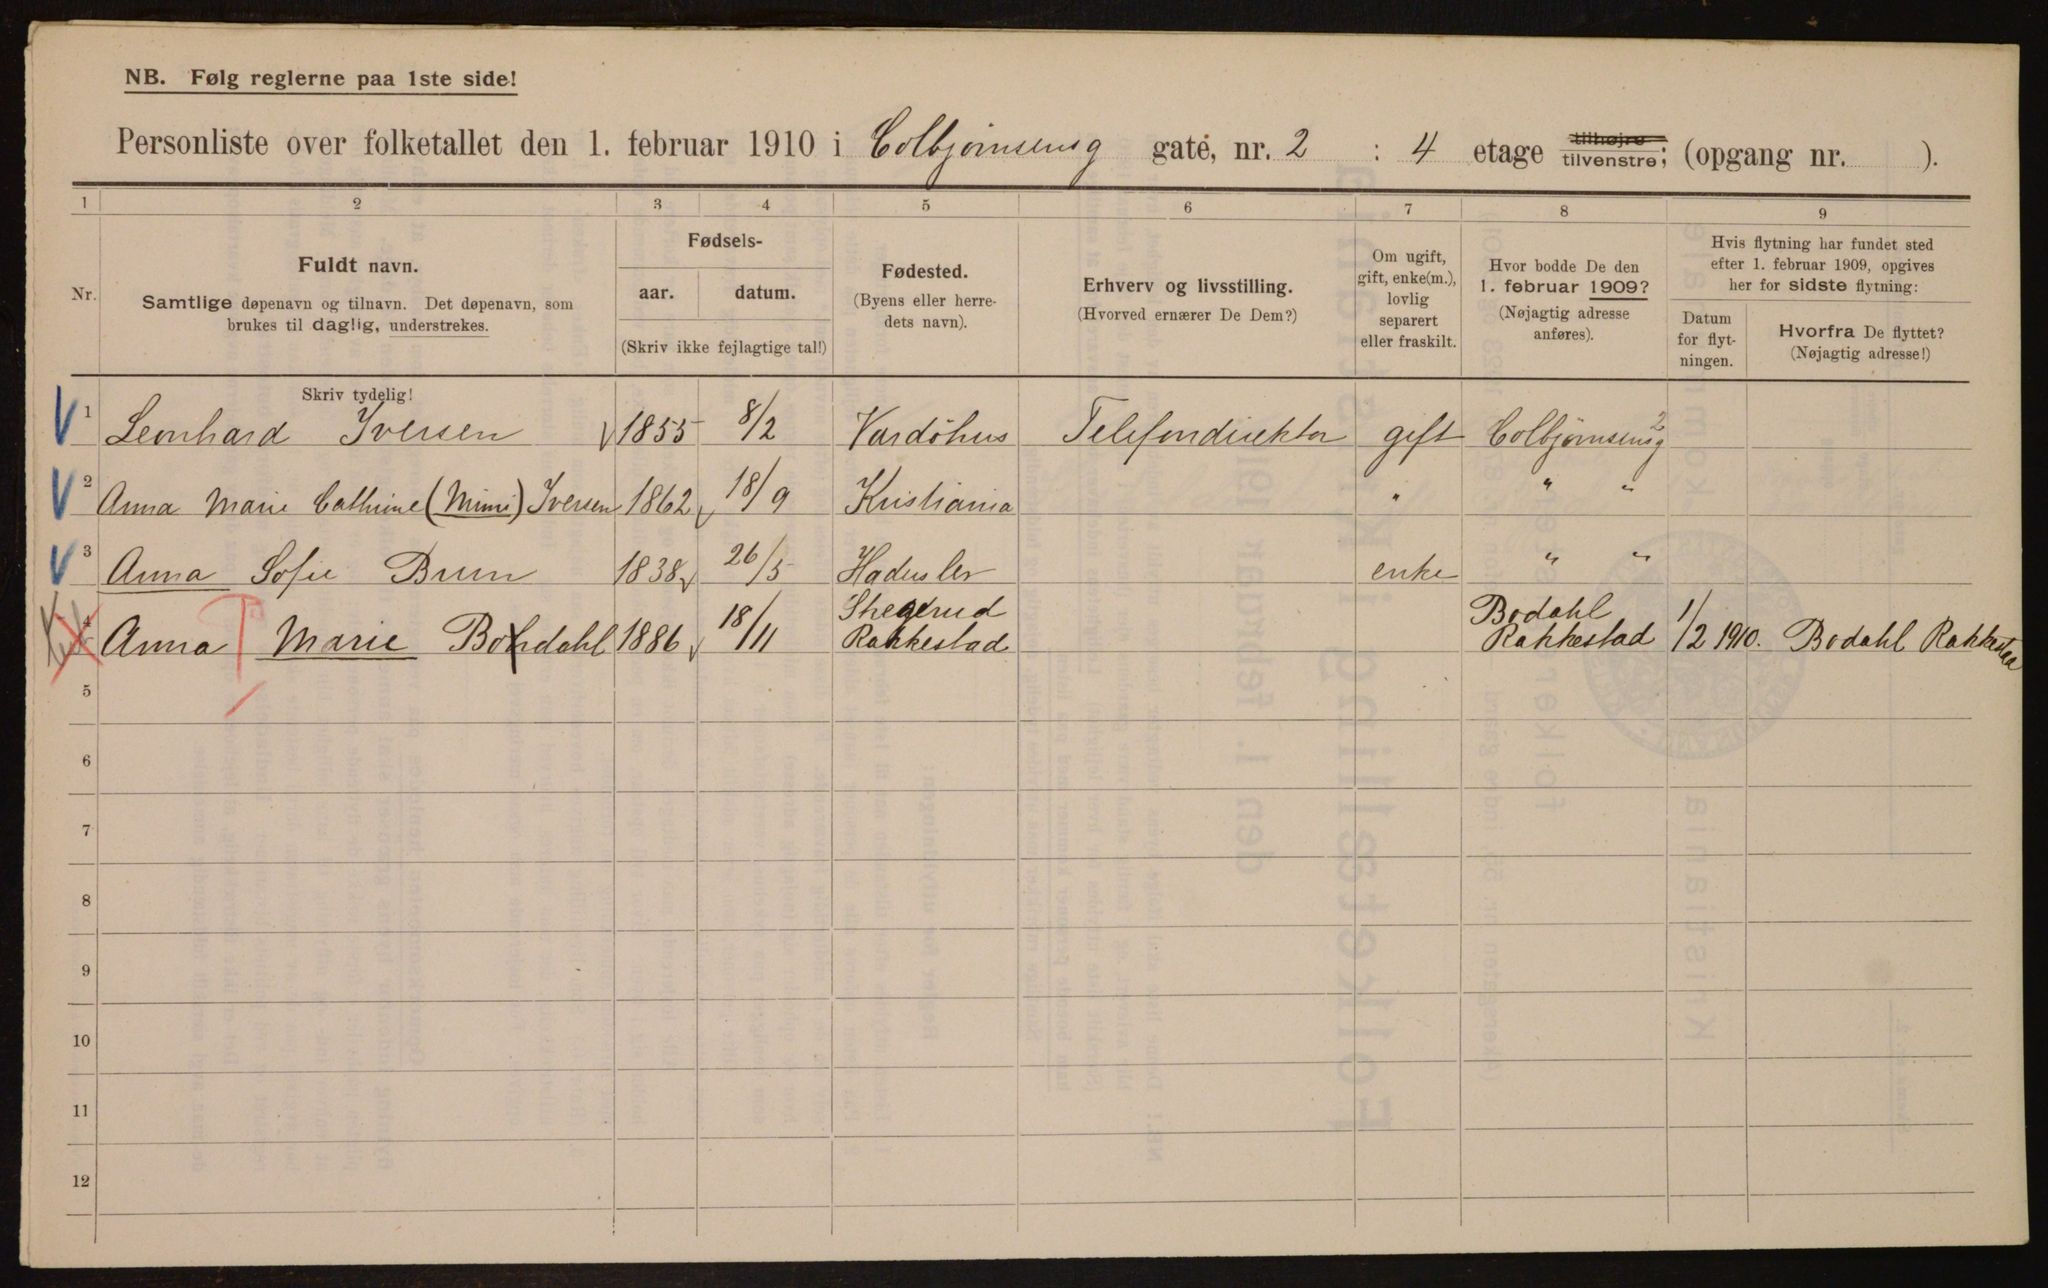 NB. Følg reglerne paa 1ste side!
Personliste over folketallet den 1. februar 1910 i Colbjørnsensg gate, nr. 2 : 4 etage tilhøjre tilvenstre; (opgang nr. ).
1 2 3 4 5 6 7 8 9
Nr.
Fuldt navn.
Samtlige døpenavn og tilnavn. Det døpenavn, som
brukes til daglig, understrekes.
Fødsels-
aar. datum.
(Skriv ikke fejlagtige tal!)
Fødested.
(Byens eller herre-
dets navn).
Erhverv og livsstilling.
(Hvorved ernærer De Dem?)
Om ugift,
gift, enke(m.),
lovlig
separert
eller fraskilt.
Hvor bodde De den
1. februar 1909?
(Nøjagtig adresse
anføres).
Hvis flytning har fundet sted
efter 1. februar 1909, opgives
her for sidste flytning:
Datum
for flyt-
ningen.
Hvorfra De flyttet?
(Nøjagtig adresse!)
Skriv tydelig!
1 Leonhard Iversen 1855 8/2 Vardöhus Telefondirektor gift Colbjørnsensg 2
2 Anna Marie Cathrine (Mimi) Iversen 1862 18/9 Kristiania " " "
3 Anna Sofie Brun 1838 26/5 Hadersler enke " "
4 Anna Marie Bondahl 1886 18/11 Rakkestad Bodahl
Rakkestad 1/2 1910. Bodahl Rakkestad
5
6
7
8
9
10
11
12